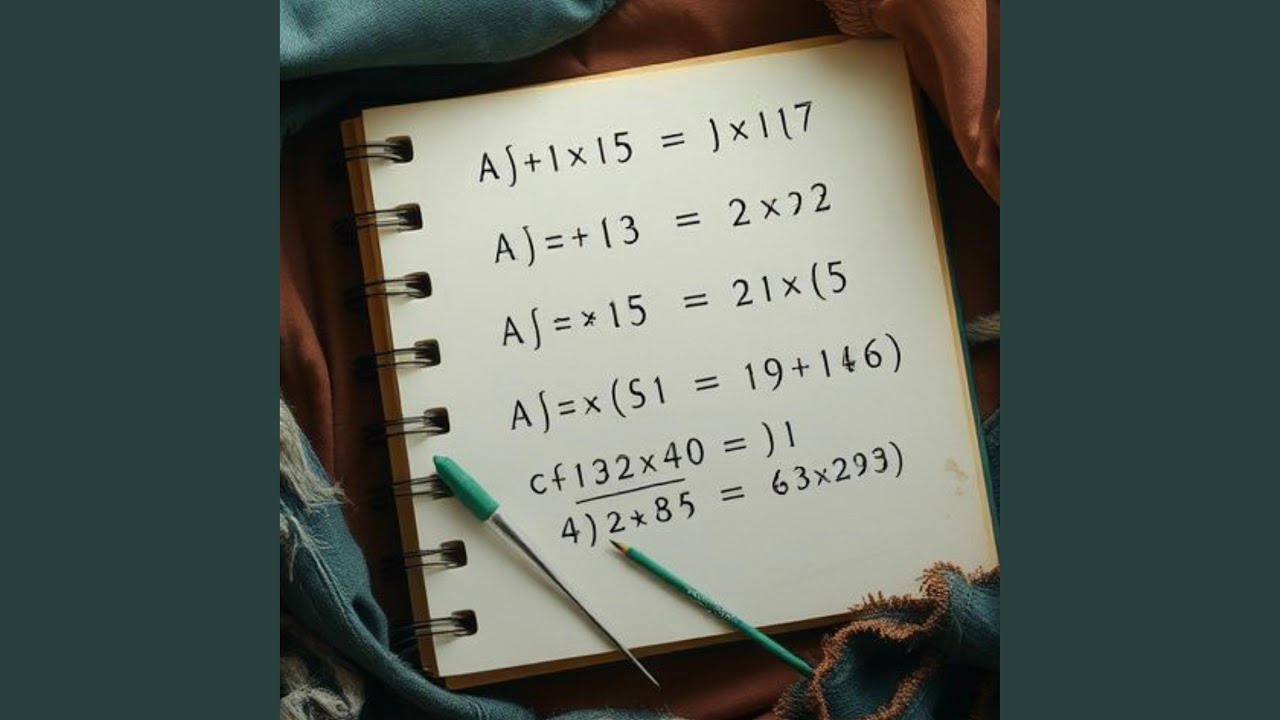 A∫+1×15 = )×117
A∫=+13 = 2×22
A∫=×15 = 21×(5
A∫=×(51 = 19+146)
cf132×40 = )1
4)2×85 = 63×293)